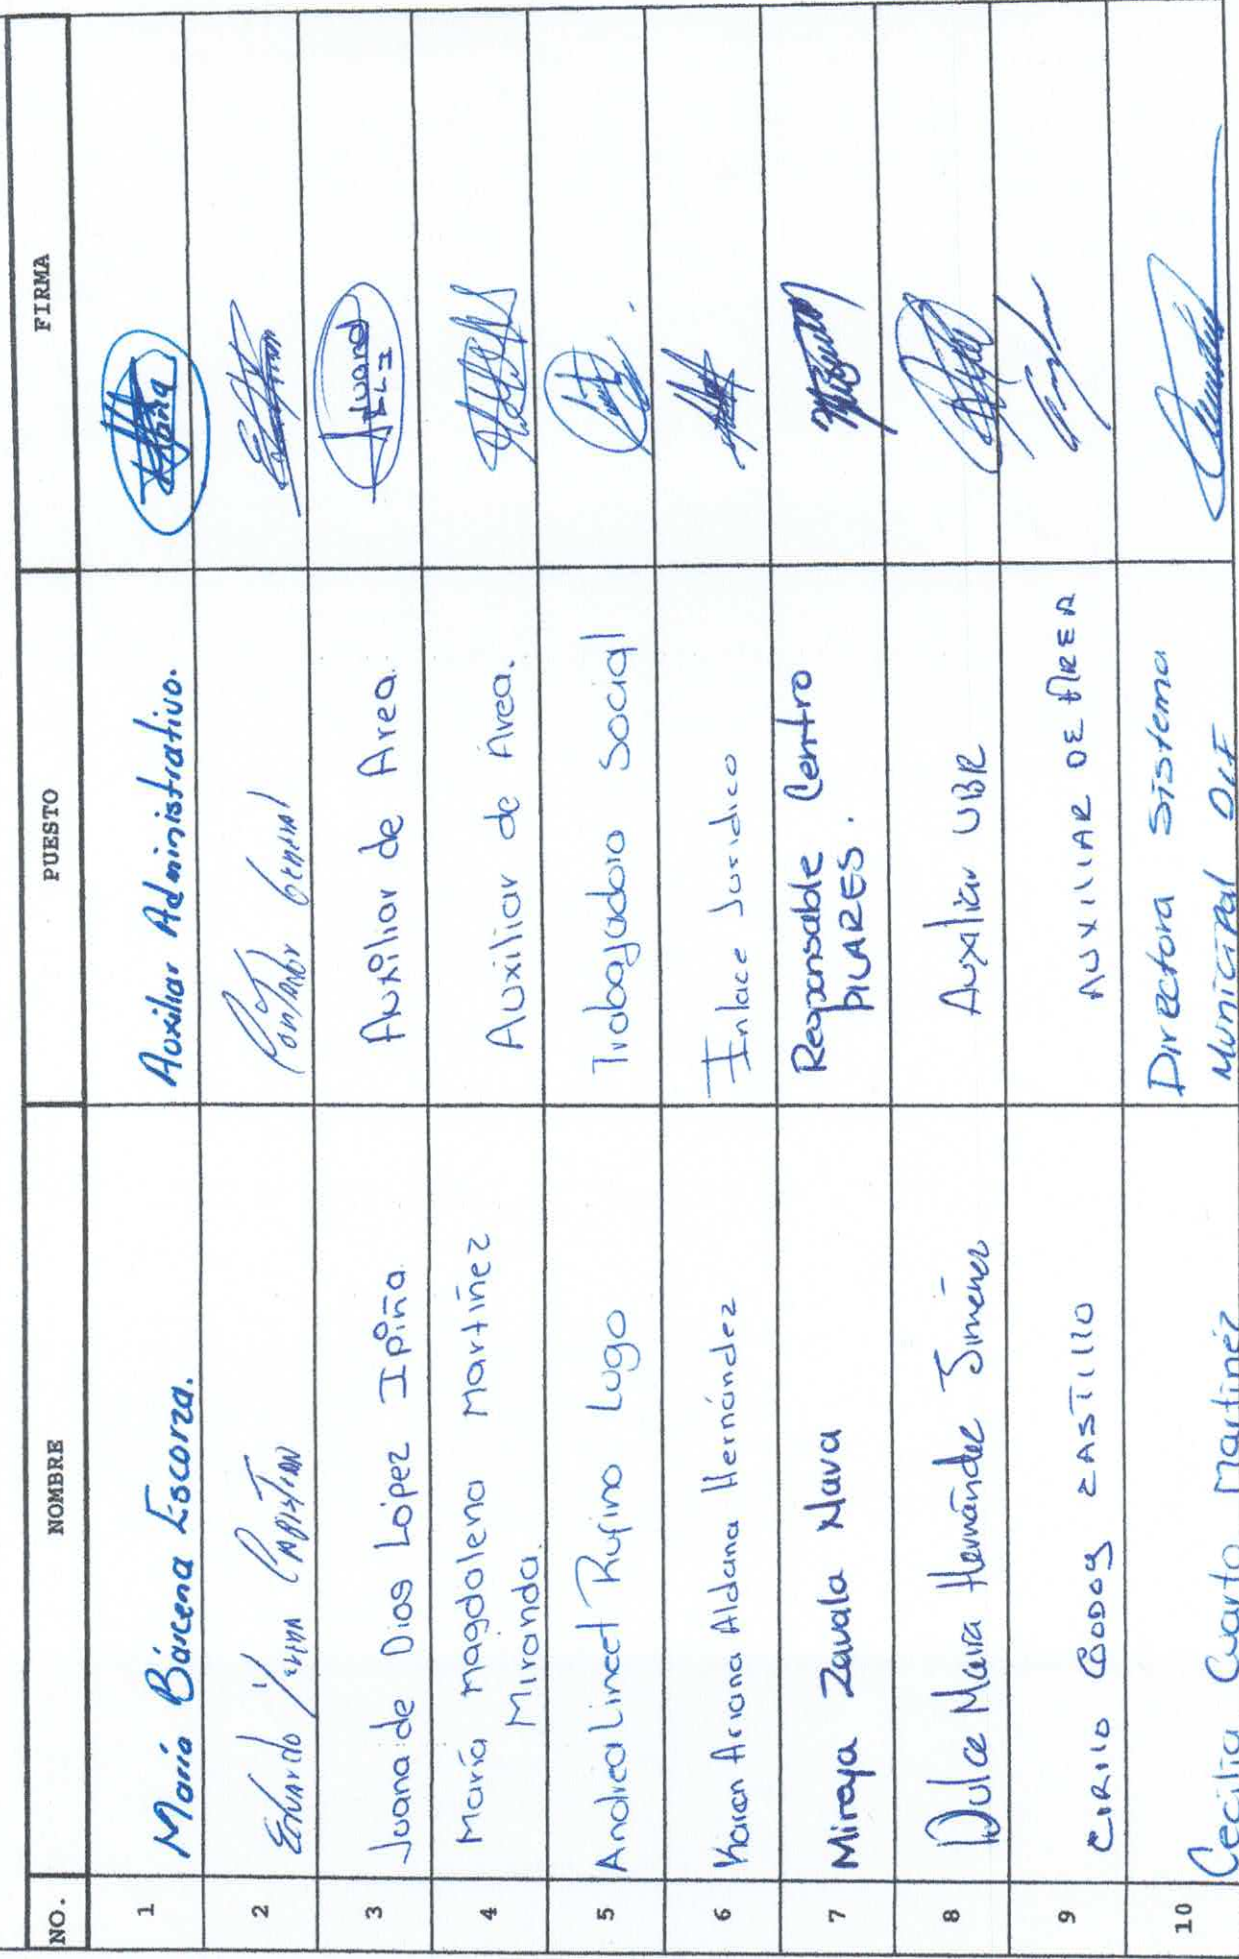 NO. NOMBRE PUESTO FIRMA
1 María Bárcena Escorza. Auxiliar Administrativo.
2 Eduardo Contador General
3 Juana de Dios López Ipiña Auxiliar de Area.
4 María Magdalena Martínez Auxiliar de Área.
Miranda.
5 Andrea Lineet Rufino Lugo Trabajadora Social
6 Karen Ariana Aldana Hernández Enlace Jurídico
7 Miraya Zavala Nava Responsable Centro
PILARES.
8 Dulce María Hernández Jiménez Auxiliar UBR
9 CIRILO GODOY CASTILLO AUXILIAR DE AREA
10 Cecilia Cuarto Martínez Directora Sistema
Municipal DIF